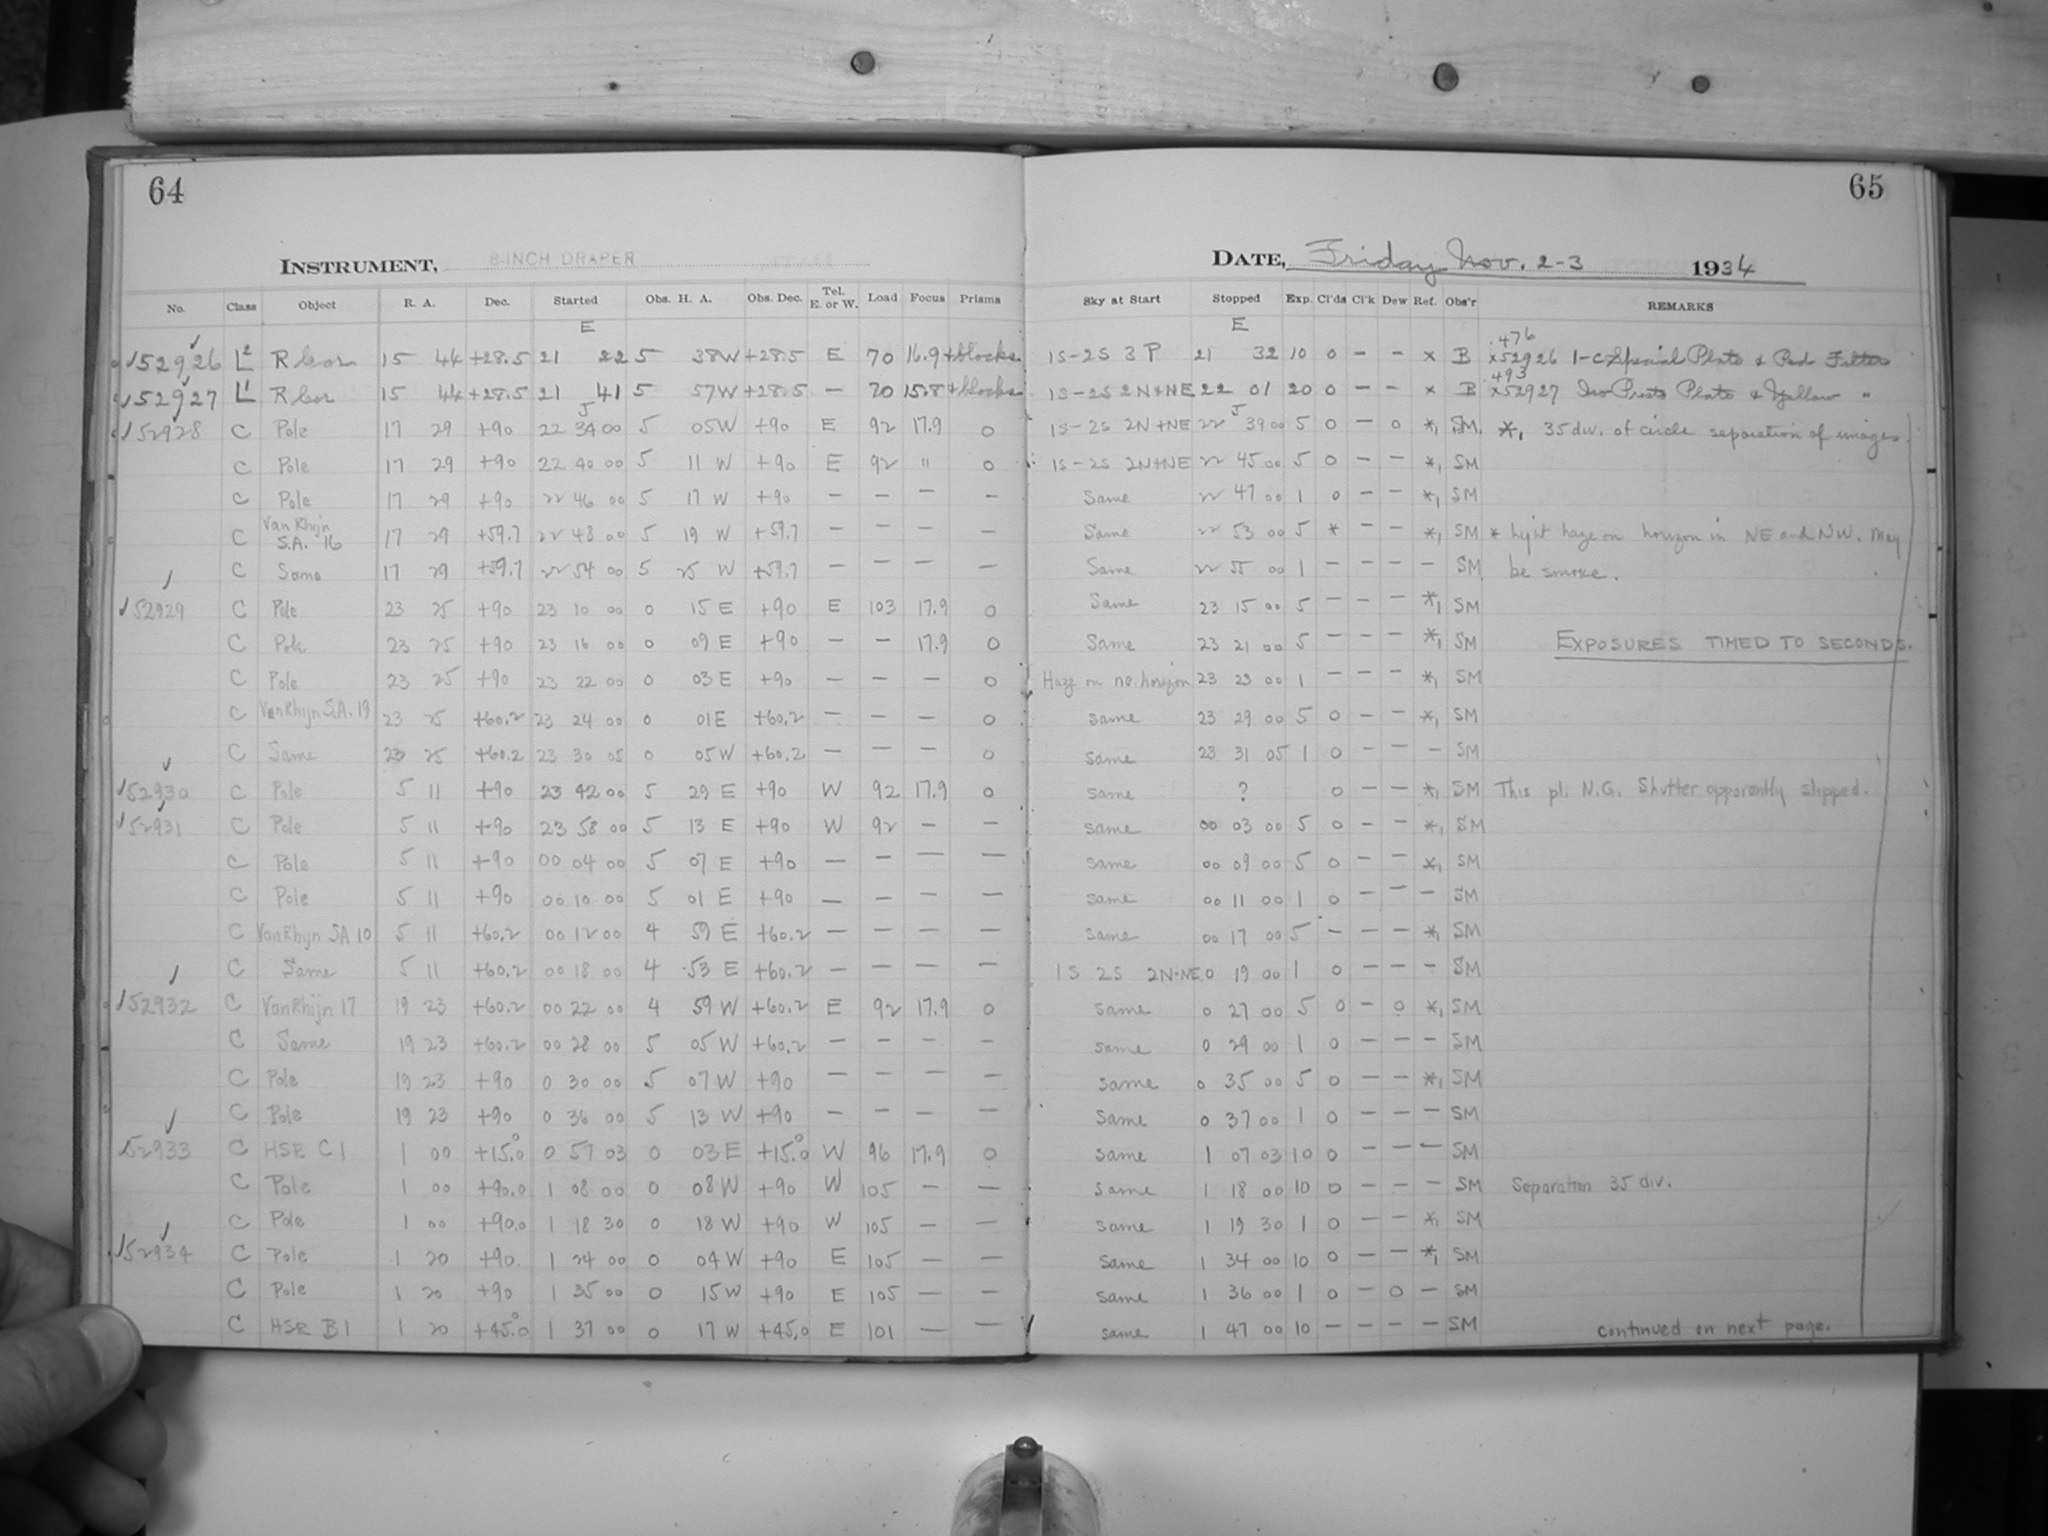 64
65
INSTRUMENT, 8-INCH DRAPER
DATE, Friday Nov. 2-3 1934
No. Class Object R. A. Dec. Started Obs. H. A. Obs. Dec. Tel. E. or W. Load Focus Prisms Sky at Start Stopped Exp. Cl'ds Cl'k Dew Ref. Obs'r REMARKS
E E .476
√52926 L2 R Cor 15 44 +28.5 21 22 5 38W +28.5 E 70 16.9 +blocks 1S-2S 3P 21 32 10 0 – – x B x52926 1-c Special Plate & Red Filter
.493
√52927 L1 R Cor 15 44 +28.5 21 41 5 57W +28.5 – 70 15.8 +blocks 1S-2S 2N+NE 22 01 20 0 – – x B x52927 Iso Presto Plate & Yellow "
J J
√52928 C Pole 17 29 +90 22 34 00 5 05W +90 E 92 17.9 0 1S-2S 2N+NE 22 39 00 5 0 – 0 *1 SM. *1 35 div. of circle separation of images.
C Pole 17 29 +90 22 40 00 5 11 W +90 E 92 " 0 1S-2S 2N+NE 22 45 00 5 0 – – *1 SM
C Pole 17 29 +90 22 46 00 5 17 W +90 – – – – Same 22 47 00 1 0 – – *1 SM
C Van Rhijn S.A. 16 17 29 +59.7 22 48 00 5 19 W +59.7 – – – – Same 22 53 00 5 * – – *1 SM * light haze on horizon in NE and NW. May
C Same 17 29 +59.7 22 54 00 5 25 W +59.7 – – – – Same 22 55 00 1 – – – – SM be smoke.
√52929 C Pole 23 25 +90 23 10 00 0 15 E +90 E 103 17.9 0 Same 23 15 00 5 – – – *1 SM
C Pole 23 25 +90 23 16 00 0 09 E +90 – – 17.9 0 Same 23 21 00 5 – – – *1 SM EXPOSURES TIMED TO SECONDS.
C Pole 23 25 +90 23 22 00 0 03 E +90 – – – 0 Haze on no. horizon 23 23 00 1 – – – *1 SM
C Van Rhijn S.A. 19 23 25 +60.2 23 24 00 0 01E +60.2 – – – 0 same 23 29 00 5 0 – – *1 SM
C Same 23 25 +60.2 23 30 05 0 05W +60.2 – – – 0 same 23 31 05 1 0 – – – SM
√52930 C Pole 5 11 +90 23 42 00 5 29 E +90 W 92 17.9 0 same ? 0 – – *1 SM This pl. N.G. Shutter apparently slipped.
√52931 C Pole 5 11 +90 23 58 00 5 13 E +90 W 92 – – same 00 03 00 5 0 – – *1 SM
C Pole 5 11 +90 00 04 00 5 07 E +90 – – – – same 00 09 00 5 0 – – *1 SM
C Pole 5 11 +90 00 10 00 5 01 E +90 – – – – same 00 11 00 1 0 – – – SM
C Van Rhijn SA 10 5 11 +60.2 00 12 00 4 59 E +60.2 – – – – same 00 17 00 5 – – – *1 SM
C Same 5 11 +60.2 00 18 00 4 53 E +60.2 – – – – 1S 2S 2N-NE 0 19 00 1 0 – – – SM
√52932 C Van Rhijn 17 19 23 +60.2 00 22 00 4 59 W +60.2 E 92 17.9 0 same 0 27 00 5 0 – 0 *1 SM
C Same 19 23 +60.2 00 28 00 5 05 W +60.2 – – – – same 0 29 00 1 0 – – – SM
C Pole 19 23 +90 0 30 00 5 07 W +90 – – – – same 0 35 00 5 0 – – *1 SM
C Pole 19 23 +90 0 36 00 5 13 W +90 – – – – same 0 37 00 1 0 – – – SM
√52933 C HSR C1 1 00 +15.0° 0 57 03 0 03 E +15.0° W 96 17.9 0 same 1 07 03 10 0 – – – SM
C Pole 1 00 +90.0 1 08 00 0 08 W +90 W 105 – – same 1 18 00 10 0 – – – SM Separation 35 div.
C Pole 1 00 +90.0 1 18 30 0 18 W +90 W 105 – – same 1 19 30 1 0 – – *1 SM
√52934 C Pole 1 20 +90. 1 24 00 0 04 W +90 E 105 – – same 1 34 00 10 0 – – *1 SM
C Pole 1 20 +90 1 35 00 0 15 W +90 E 105 – – same 1 36 00 1 0 – 0 – SM
C HSR B1 1 20 +45.0° 1 37 00 0 17 W +45.0 E 101 – – same 1 47 00 10 – – – – SM continued on next page.